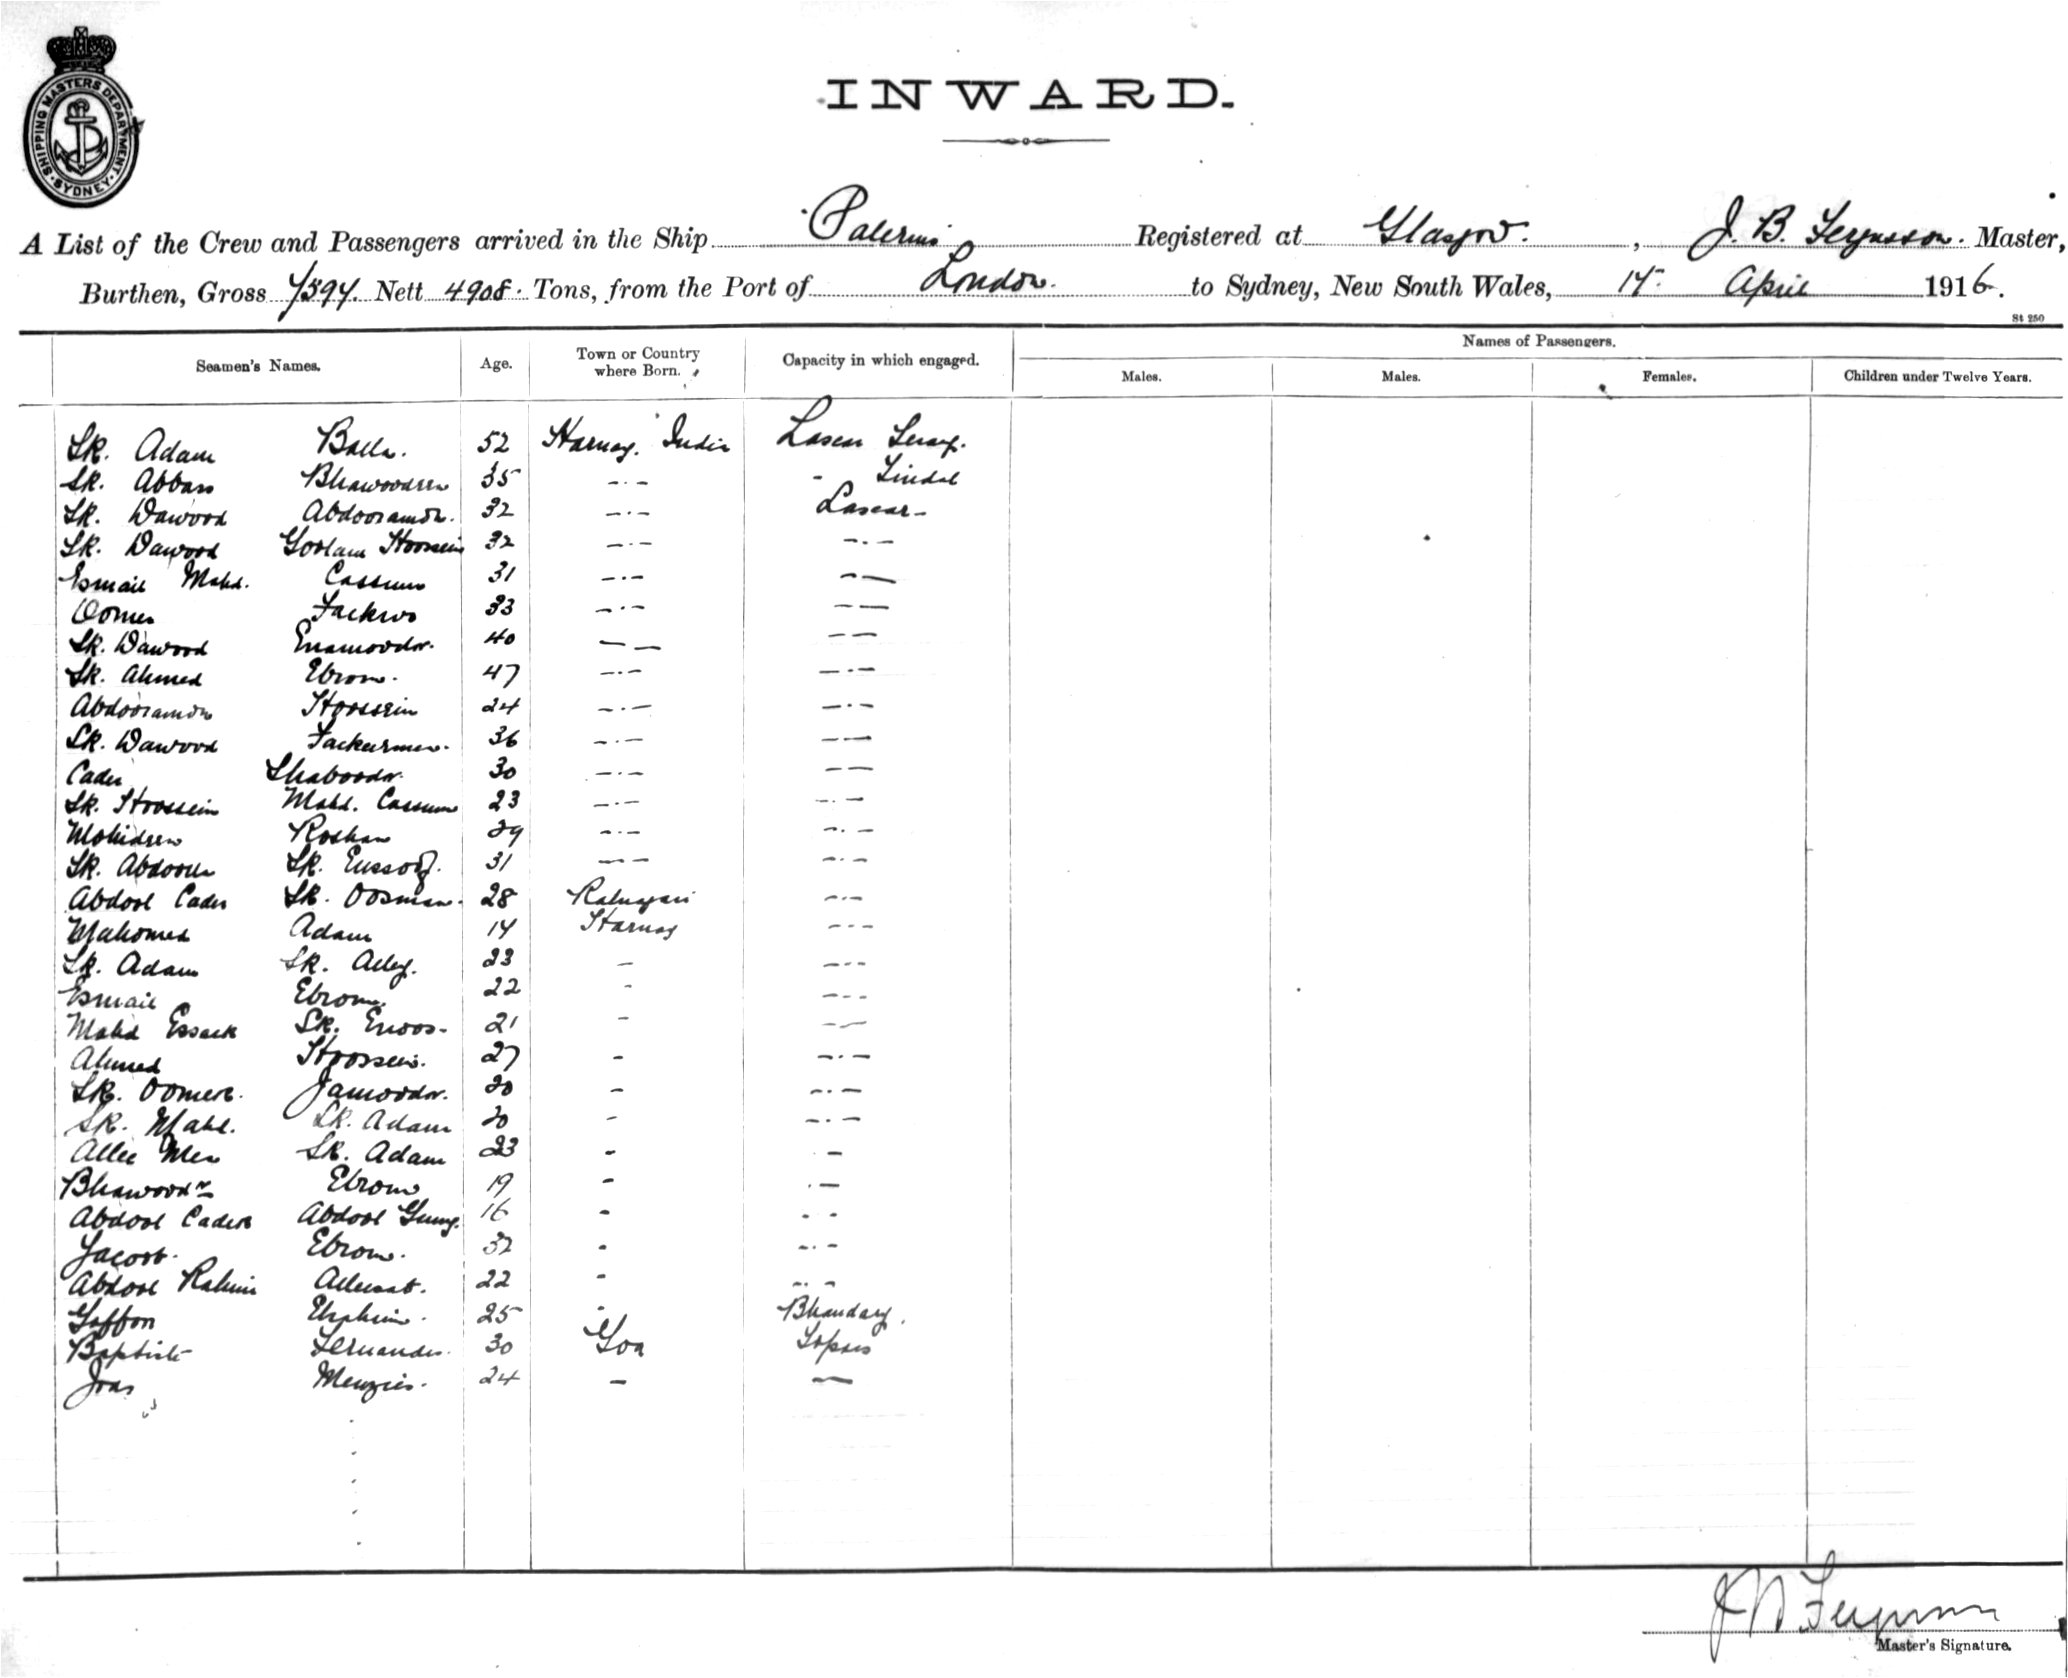 SHIPPING MASTERS DEPARTMENT · SYDNEY ·
INWARD.
A List of the Crew and Passengers arrived in the Ship Palermo Registered at Glasgow. , J. B. Fergusson. Master,
Burthen, Gross 7594. Nett 4908. Tons, from the Port of London. to Sydney, New South Wales, 14 April 1916.
St 250
Seamen's Names. Age. Town or Country where Born. Capacity in which engaged. Names of Passengers.
Males. Males. Females. Children under Twelve Years.
Sk. Adam Balla. 52 Harnay. India Lascar Serang.
Sk. Abbas Bhawoodeen 35 -.- - Tindal
Sk. Dawood Abdooramon. 32 -.- Lascar -
Sk. Dawood Goolam Hoosein 32 -.- -.-
Esmail Mahd. Cassum 31 -.- - -
Oomer 33 -.- - -
Sk. Dawood Enamoodn. 40 - - - -
Sk. Ahmed Ebrom. 47 -.- -.-
Abdooramon Hoossein 24 -.- -.-
Sk. Dawood 36 -.- - -
Cader Shaboodn. 30 -.- - -
Sk. Hoossein Mahd. Cassum 23 -.- -.-
Mohideen Roshan 29 -.- -.-
Sk. Abdoola Sk. Eussoof. 31 - - -.-
Abdool Cader Sk. Oosman. 28 Ratnagari -.-
Mahomed Adam 14 Harnay - - -
Sk. Adam Sk. Alley. 23 - - - -
Esmail Ebrom. 22 - - - -
Mahd Essack Sk. Enoos - 21 - - -
Ahmed Hoossein. 27 - -.-
Sk. Oomer. Jamoodn. 20 - -.-
Sk. Mahd. Sk. Adam 20 - -.-
Allee Mea Sk. Adam 23 - . -
Bhawoodn Ebrom 19 - . -
Abdool Cader Abdool Guny. 16 - - -
Jacoob. Ebrom. 32 - -.-
Abdool Rahim 22 - -.-
Goffoor Ebrahim. 25 - Bhandary.
Baptist Fernandes. 30 Goa Topass
Joas Menzies. 24 - -
J B Fergusson
Master's Signature.